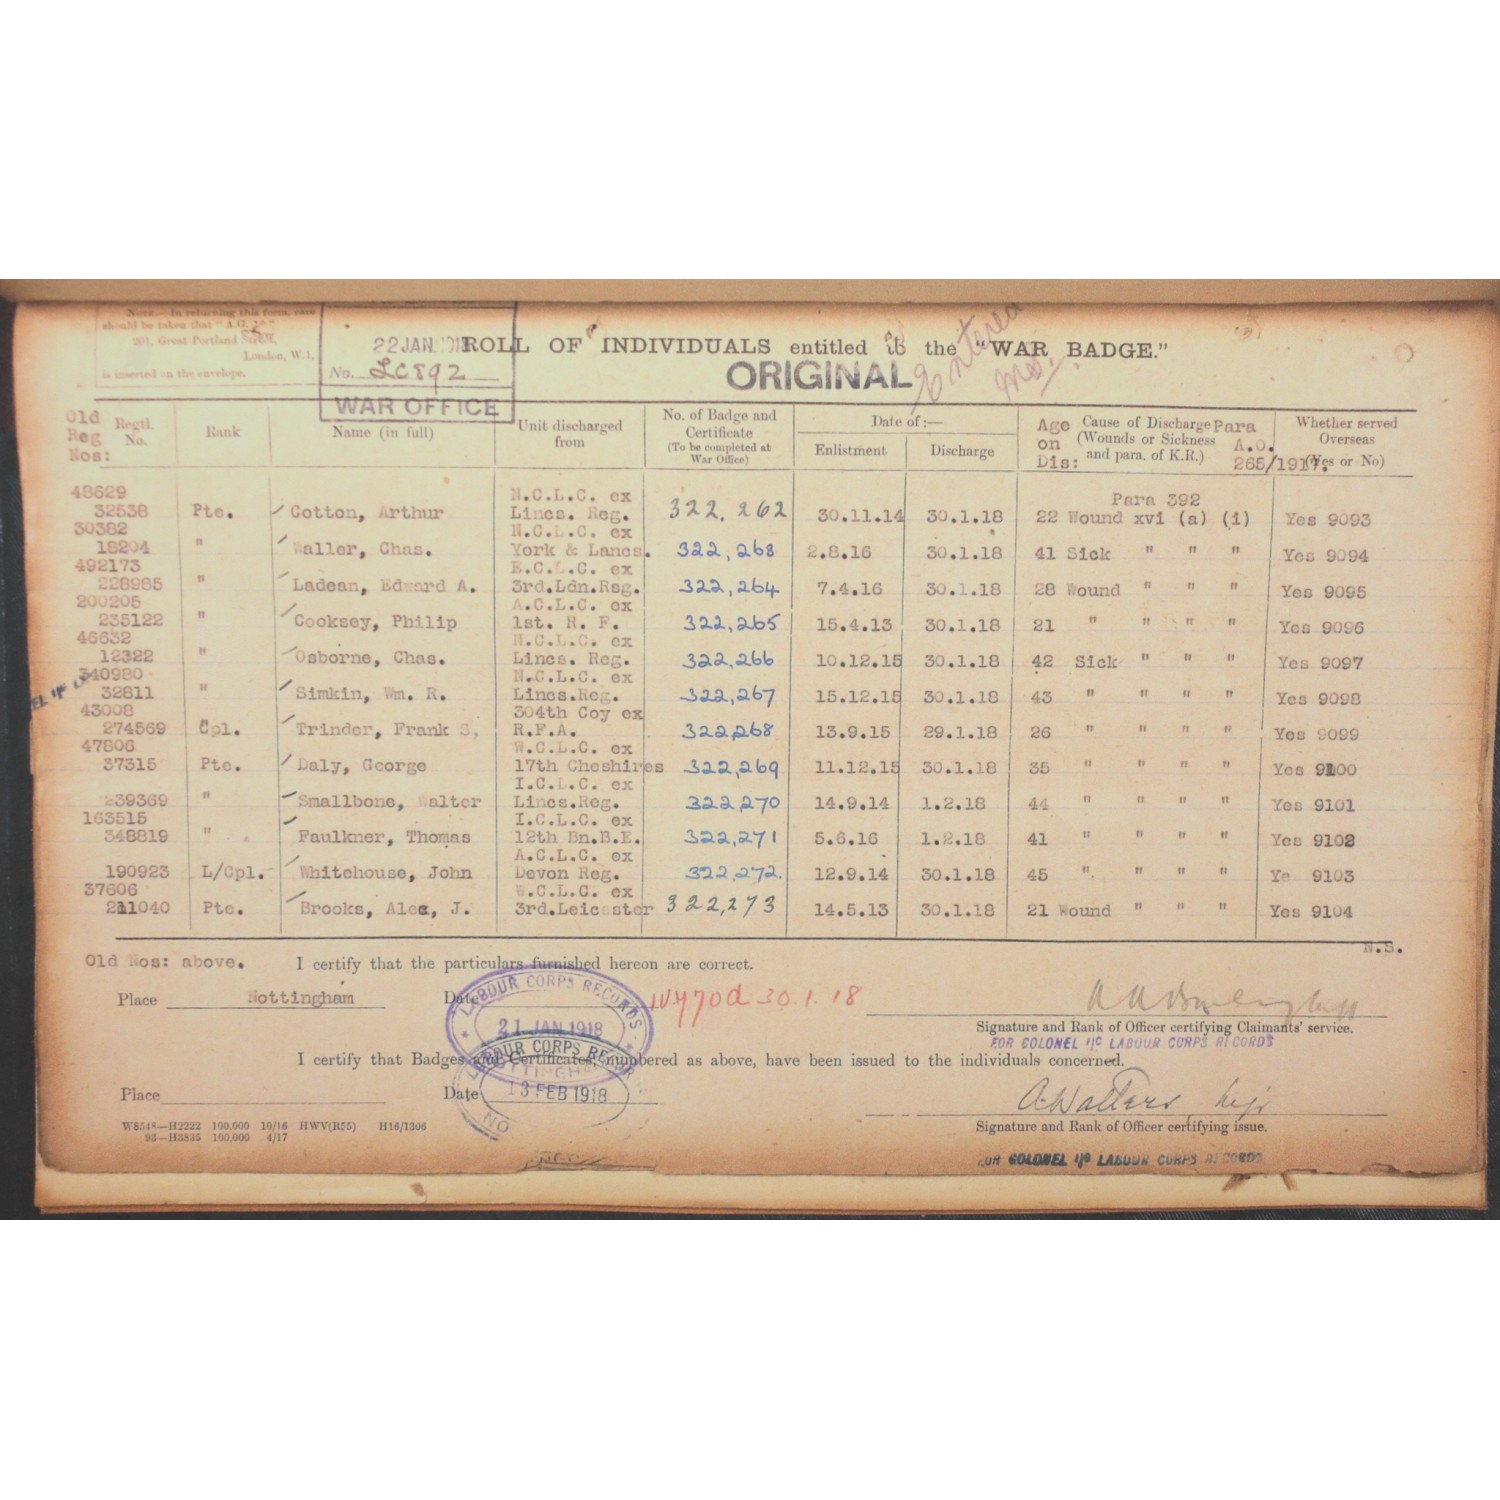 NOTE.—In returning this form, care
should be taken that "A.G.
201, Great Portland Street,
London, W.1,
is inserted on the envelope.
22 JAN 1918
No. LC892
WAR OFFICE
ROLL OF INDIVIDUALS entitled to the "WAR BADGE."
ORIGINAL
Entered
Old Reg Nos: Regtl. No. Rank Name (in full) Unit discharged from No. of Badge and Certificate (To be completed at War Office) Date of:— Enlistment Discharge Age on Dis: Cause of Discharge (Wounds or Sickness and para. of K.R.) Para A.O. 265/1917. Whether served Overseas (Yes or No)
48629 N.C.L.C. ex Para 392
32538 Pte. Cotton, Arthur Lincs. Reg. 322,262 30.11.14 30.1.18 22 Wound xvi (a) (i) Yes 9093
30382 N.C.L.C. ex
18204 " Waller, Chas. York & Lancs. 322,263 2.8.16 30.1.18 41 Sick " " " Yes 9094
492173 E.C.L.C. ex
228985 " Ladean, Edward A. 3rd.Ldn.Rsg. 322,264 7.4.16 30.1.18 28 Wound " " " Yes 9095
200205 A.C.L.C. ex
235122 " Cooksey, Philip 1st. R. F. 322,265 15.4.13 30.1.18 21 " " " " Yes 9096
46632 N.C.L.C. ex
12322 " Osborne, Chas. Lincs. Reg. 322,266 10.12.15 30.1.18 42 Sick " " " Yes 9097
340980 N.C.L.C. ex
32811 " Simkin, Wm. R. Lincs.Reg. 322,267 15.12.15 30.1.18 43 " " " " Yes 9098
43008 304th Coy ex
274569 Cpl. Trinder, Frank S. R.F.A. 322,268 13.9.15 29.1.18 26 " " " " Yes 9099
47806 W.C.L.C. ex
37315 Pte. Daly, George 17th Cheshires 322,269 11.12.15 30.1.18 35 " " " " Yes 9100
I.C.L.C. ex
239369 " Smallbone, Walter Lincs.Reg. 322,270 14.9.14 1.2.18 44 " " " " Yes 9101
163515 I.C.L.C. ex
348819 " Faulkner, Thomas 12th Bn.B.E. 322,271 5.6.16 1.2.18 41 " " " " Yes 9102
A.C.L.C. ex
190923 L/Cpl. Whitehouse, John Devon Reg. 322,272. 12.9.14 30.1.18 45 " " " " Ye 9103
37606 W.C.L.C. ex
211040 Pte. Brooks, Alex, J. 3rd.Leicester 322,273 14.5.13 30.1.18 21 Wound " " " Yes 9104
N.S.
Old Nos: above. I certify that the particulars furnished hereon are correct.
Place Nottingham Date 30.1.18
LABOUR CORPS RECORDS
21 JAN 1918
NOTTINGHAM
Signature and Rank of Officer certifying Claimants' service.
FOR COLONEL I/C LABOUR CORPS RECORDS
I certify that Badges and Certificates, numbered as above, have been issued to the individuals concerned.
LABOUR CORPS RECORDS
Place Date 13 FEB 1918 A Walters
W8548—H2222 100,000 10/16 HWV(R55) H16/1306
93—H3835 100,000 4/17
Signature and Rank of Officer certifying issue.
FOR COLONEL I/C LABOUR CORPS RECORDS